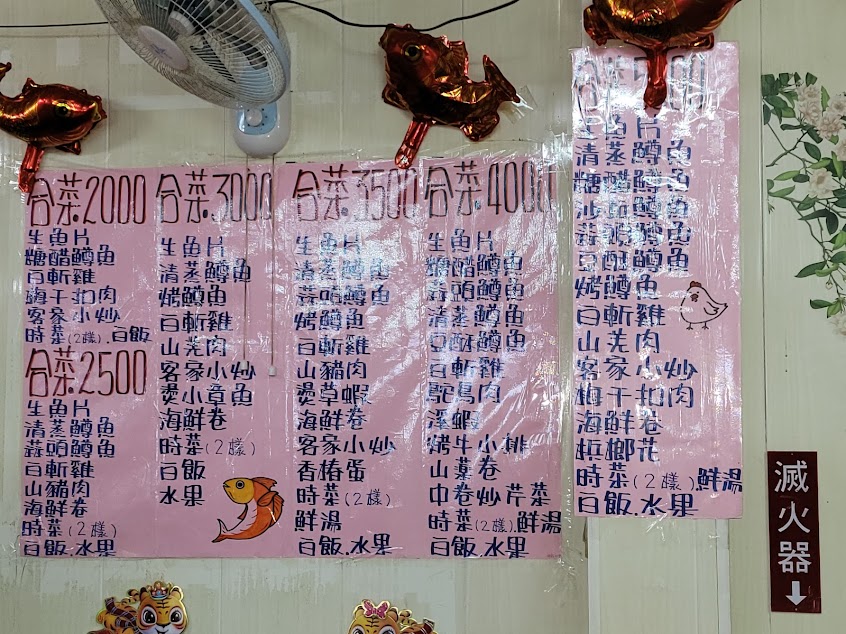 合菜2000
生魚片
糖醋鱒魚
白斬雞
梅干扣肉
客家小炒
時菜(2樣).白飯
合菜2500
生魚片
清蒸鱒魚
蒜頭鱒魚
白斬雞
山豬肉
海鮮卷
時菜(2樣)
白飯.水果
合菜3000
生魚片
清蒸鱒魚
烤鱒魚
白斬雞
山羌肉
客家小炒
燙小章魚
海鮮卷
時菜(2樣)
白飯
水果
合菜3500
生魚片
清蒸鱒魚
蒜頭鱒魚
烤鱒魚
白斬雞
山豬肉
燙草蝦
海鮮卷
客家小炒
香椿蛋
時菜(2樣)
鮮湯
白飯.水果
合菜4000
生魚片
糖醋鱒魚
蒜頭鱒魚
清蒸鱒魚
豆酥鱒魚
白斬雞
鴕鳥肉
溪蝦
烤牛小排
山藥卷
中卷炒芹菜
時菜(2樣).鮮湯
白飯.水果
合菜
生魚片
清蒸鱒魚
糖醋鱒魚
鱒魚
蒜頭鱒魚
豆酥鱒魚
烤鱒魚
白斬雞
山羌肉
客家小炒
梅干扣肉
海鮮卷
檳榔花
時菜(2樣).鮮湯
白飯.水果
滅火器